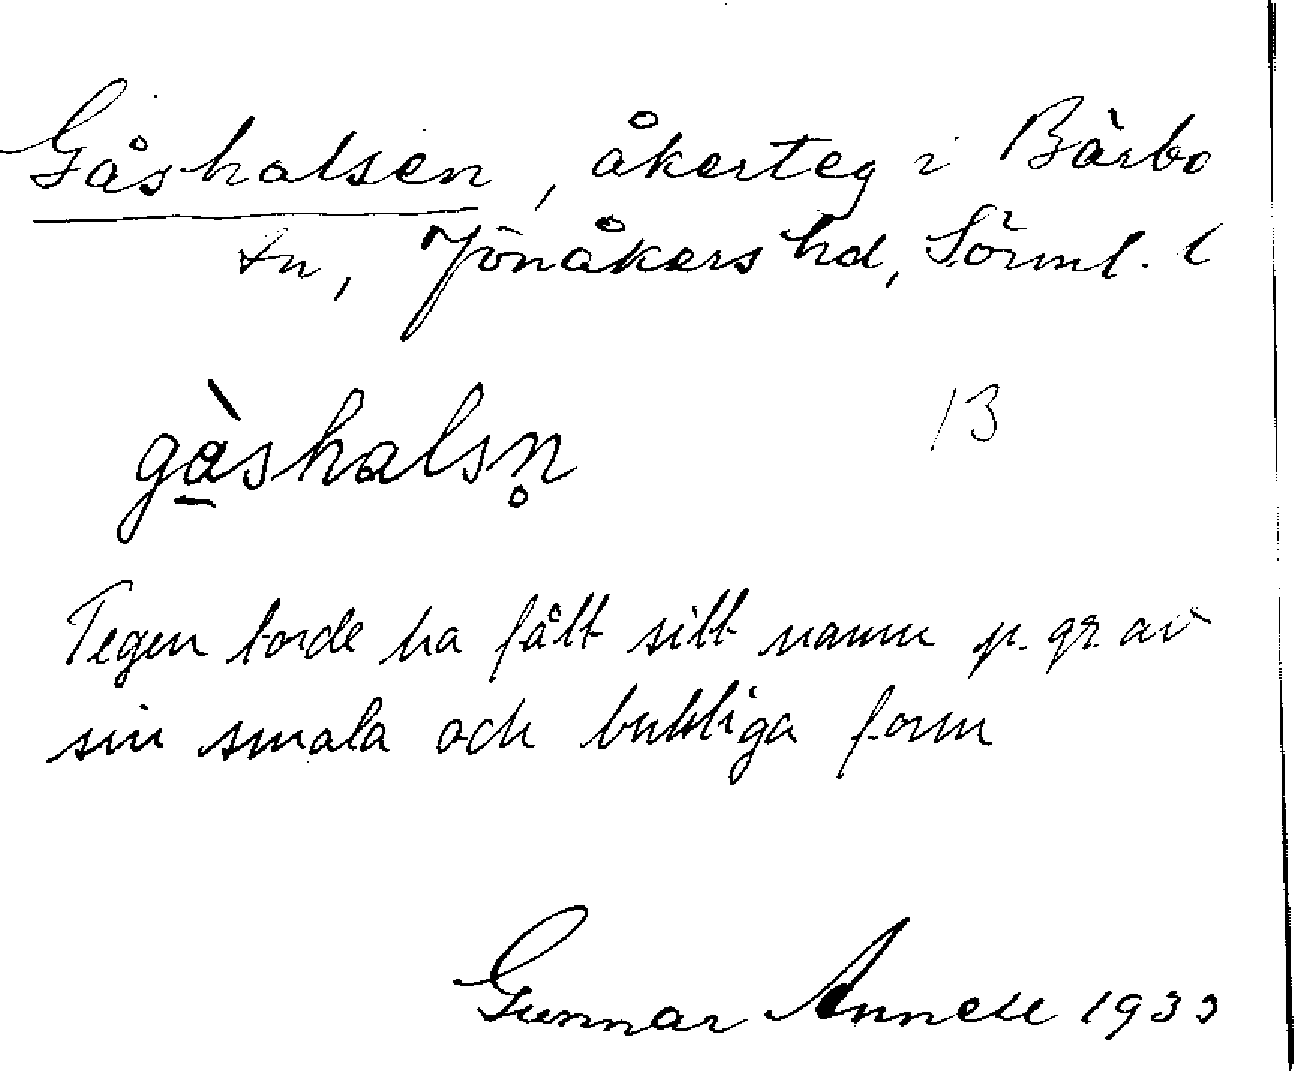 Gåshalsen, åkerteg i Bärbo
sn, Jönåkers hd, Sörml. l
gàshalsn̥
13
Tegen torde ha fått sitt namn p. gr. av
sin smala och buktiga form
Gunnar Annell 1933